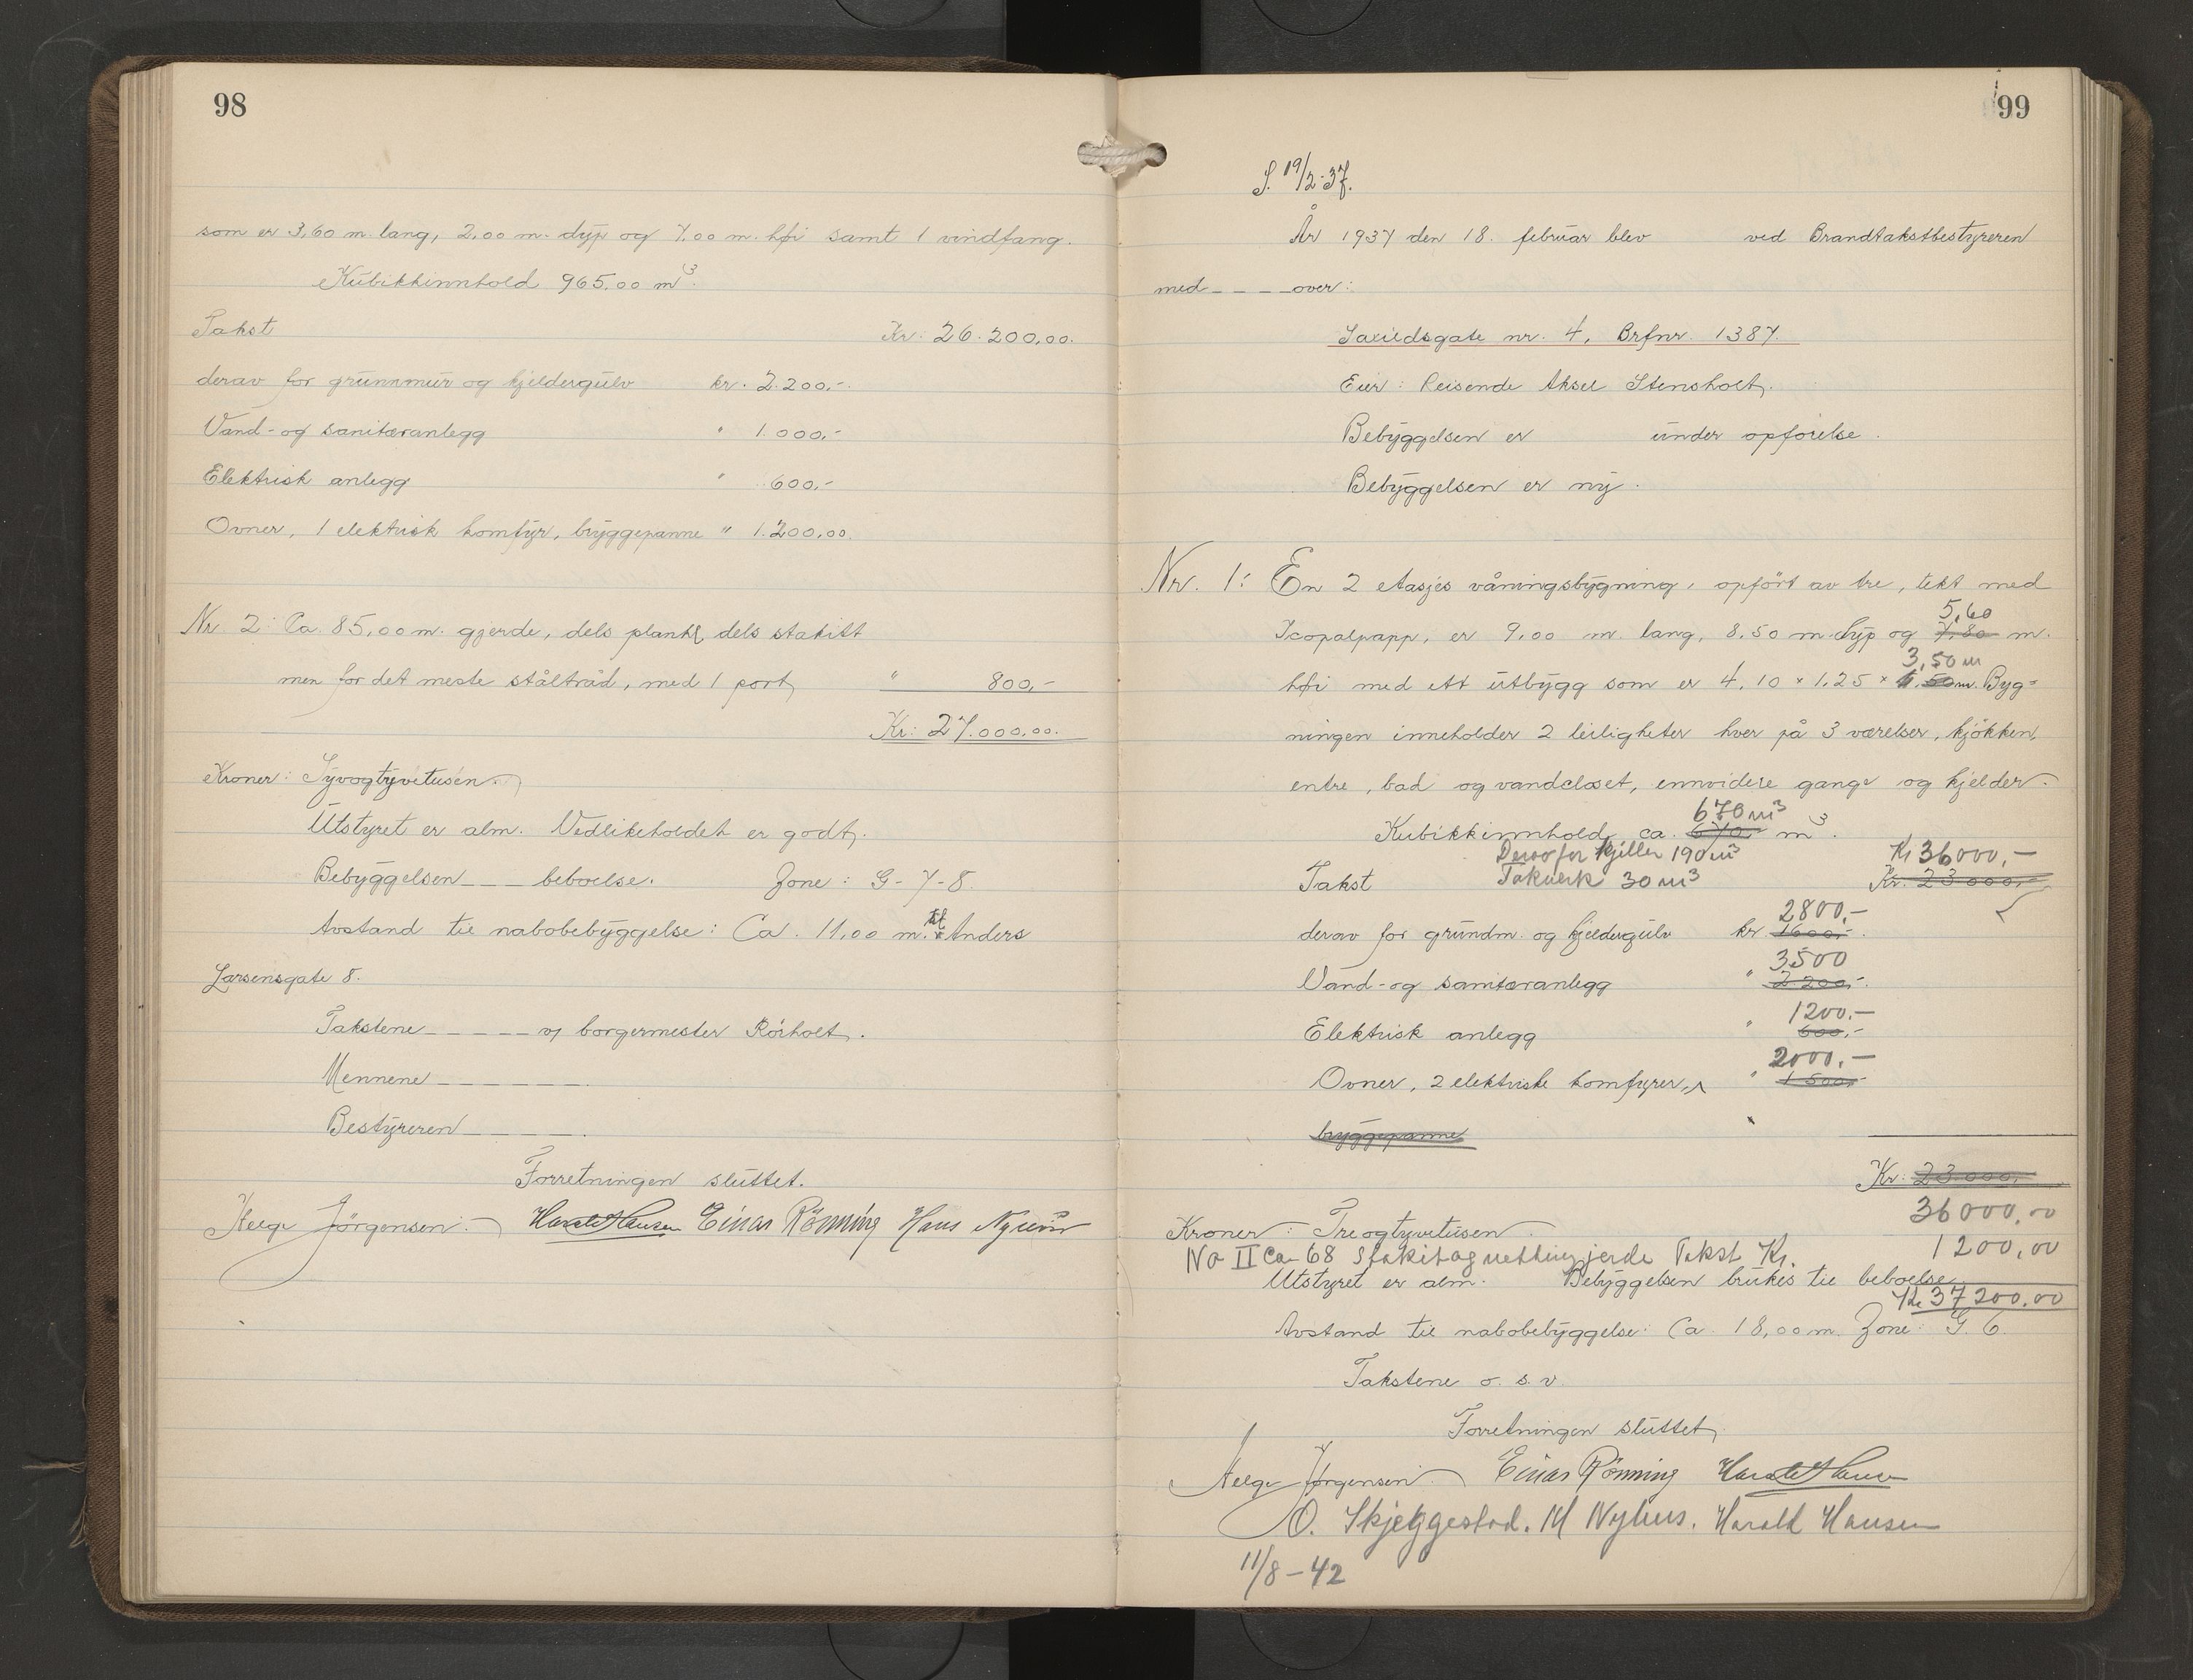 98
som er 3,60 m. lang, 2,00 m. dyp og 7.00 m. høi samt 1 vindfang.
Kubikkinnhold 965,00 m³.
Takst Kr. 26.200,00.
derav for grunnmur og kjeldergulv kr. 2.200,-.
Vand- og sanitæranlegg " 1.000,-
Elektrisk anlegg " 600,-
Ovner, 1 elektrisk komfyr, bryggepanne " 1.200,00.
Nr 2: Ca. 85,00 m. gjerde, dels plank, dels stakitt
men for det meste ståltråd, med 1 port, " 800,-
Kr: 27.000,00.
Kroner: Syvogtyvetusen.
Utstyret er alm. Vedlikeholdet er godt.
Bebyggelsen _ _ _ beboelse. Zone: G-7-8.
Avstand til nabobebyggelse: Ca. 11,00 m. til Anders
Larsensgate 8.
Takstene _ _ _ _ _ v/ borgermester Rörholt.
Mennene _ _ _ _ _ _ _.
Bestyreren _ _ _ _ _.
Forretningen sluttet.
Helge Jörgensen. Harald Hansen Einar Rönning Hans
99
S. 19/2-37.
År 1937 den 18. februar blev ved Brandtakstbestyreren
med _ _ _ _ over:
Saxildsgate nr. 4, Brfnr. 1387.
Eier: Reisende Aksel Stensholt.
Bebyggelsen er under opförelse.
Bebyggelsen er ny.
Nr. 1: En 2 etasjes våningsbygning, opfört av tre, tekt med
5,60
Icopalpapp, er 9,00 m. lang, 8,50 m. dyp og 7,80 m.
3,50 m
høi med ett utbygg som er 4,10 × 1,25 × 50 m. Byg=
ningen inneholder 2 leiligheter hver på 3 værelser, kjökken,
entre, bad og vandcloset, ennvidere gange og kjelder.
670 m³
Kubikkinnhold ca. 670, m³.
Derav for kjeller 190 m³ Kr 36000,-
Takst Takverk 30 m³ Kr. 23.000,-
2800,-
derav for grundm. og kjeldergulv kr 1600,-.
3500
Vand- og sanitæranlegg " 2.200,-.
1200.-
Elektrisk anlegg " 600,-
2000.-
Ovner, 2 elektriske komfyrer, " 1.500,-
bryggepanne "
Kr: 23.000,-
36000,00
Kroner: Treogtyvetusen.
No II ca 68 stakit og nettingjerde Takst Kr. 1200,00
Utstyret er alm. Bebyggelsen brukes til beboelse.
Kr 37200.00
Avstand til nabobebyggelse: Ca. 18,00 m. Zone: G. 6.
Takstene o. s. v.
Forretningen sluttet.
Helge Jørgensen. Einar Rönning Harald Hansen
O. Skjeggestad. M Nyhus. Harald Hansen
11/8-42